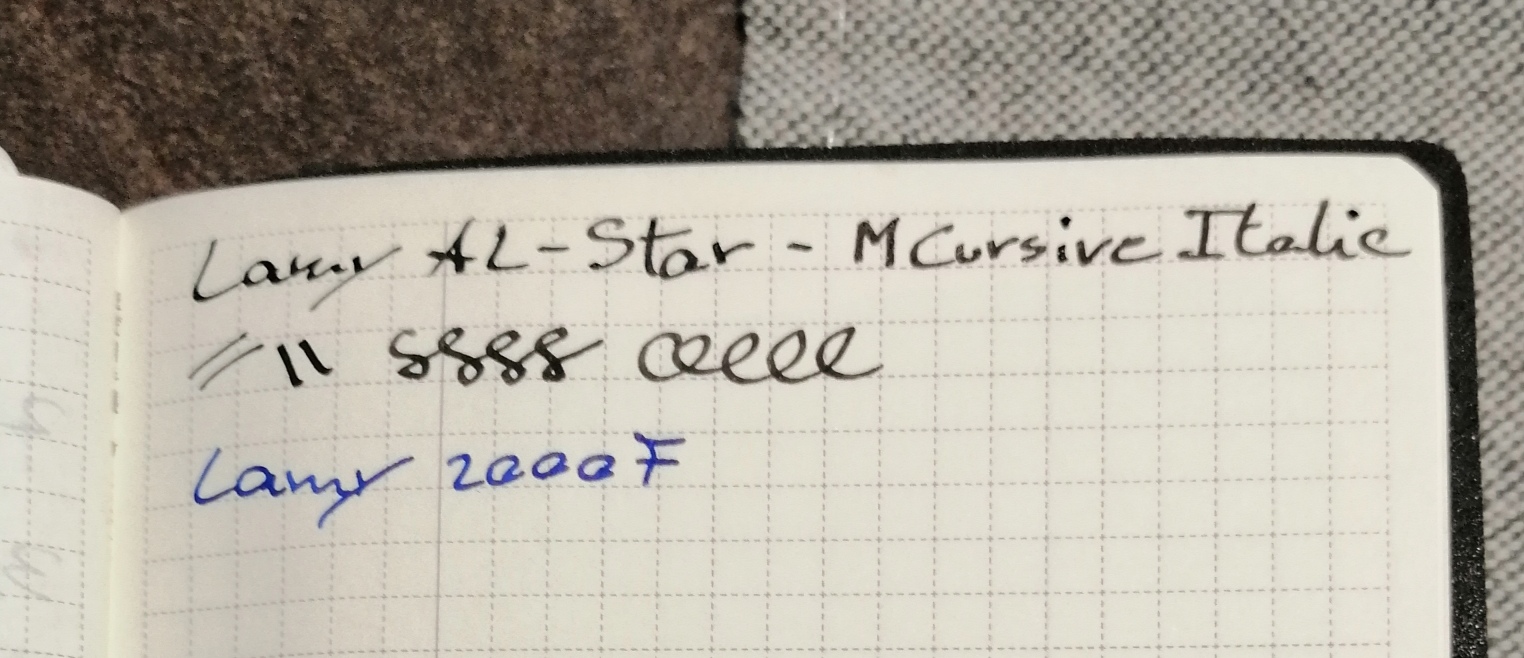 Lamy AL-Star - M Cursive Italic
// \\ ssss eeeee
Lamy 2000 F